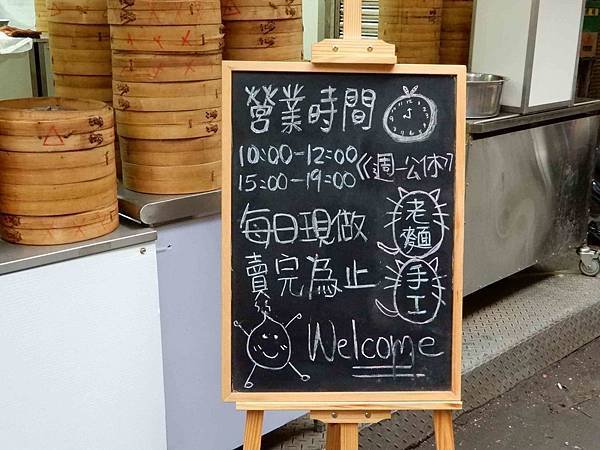 營業時間
10:00-12:00
15:00-19:00
《週一公休》
每日現做
賣完為止
老麵
手工
Welcome